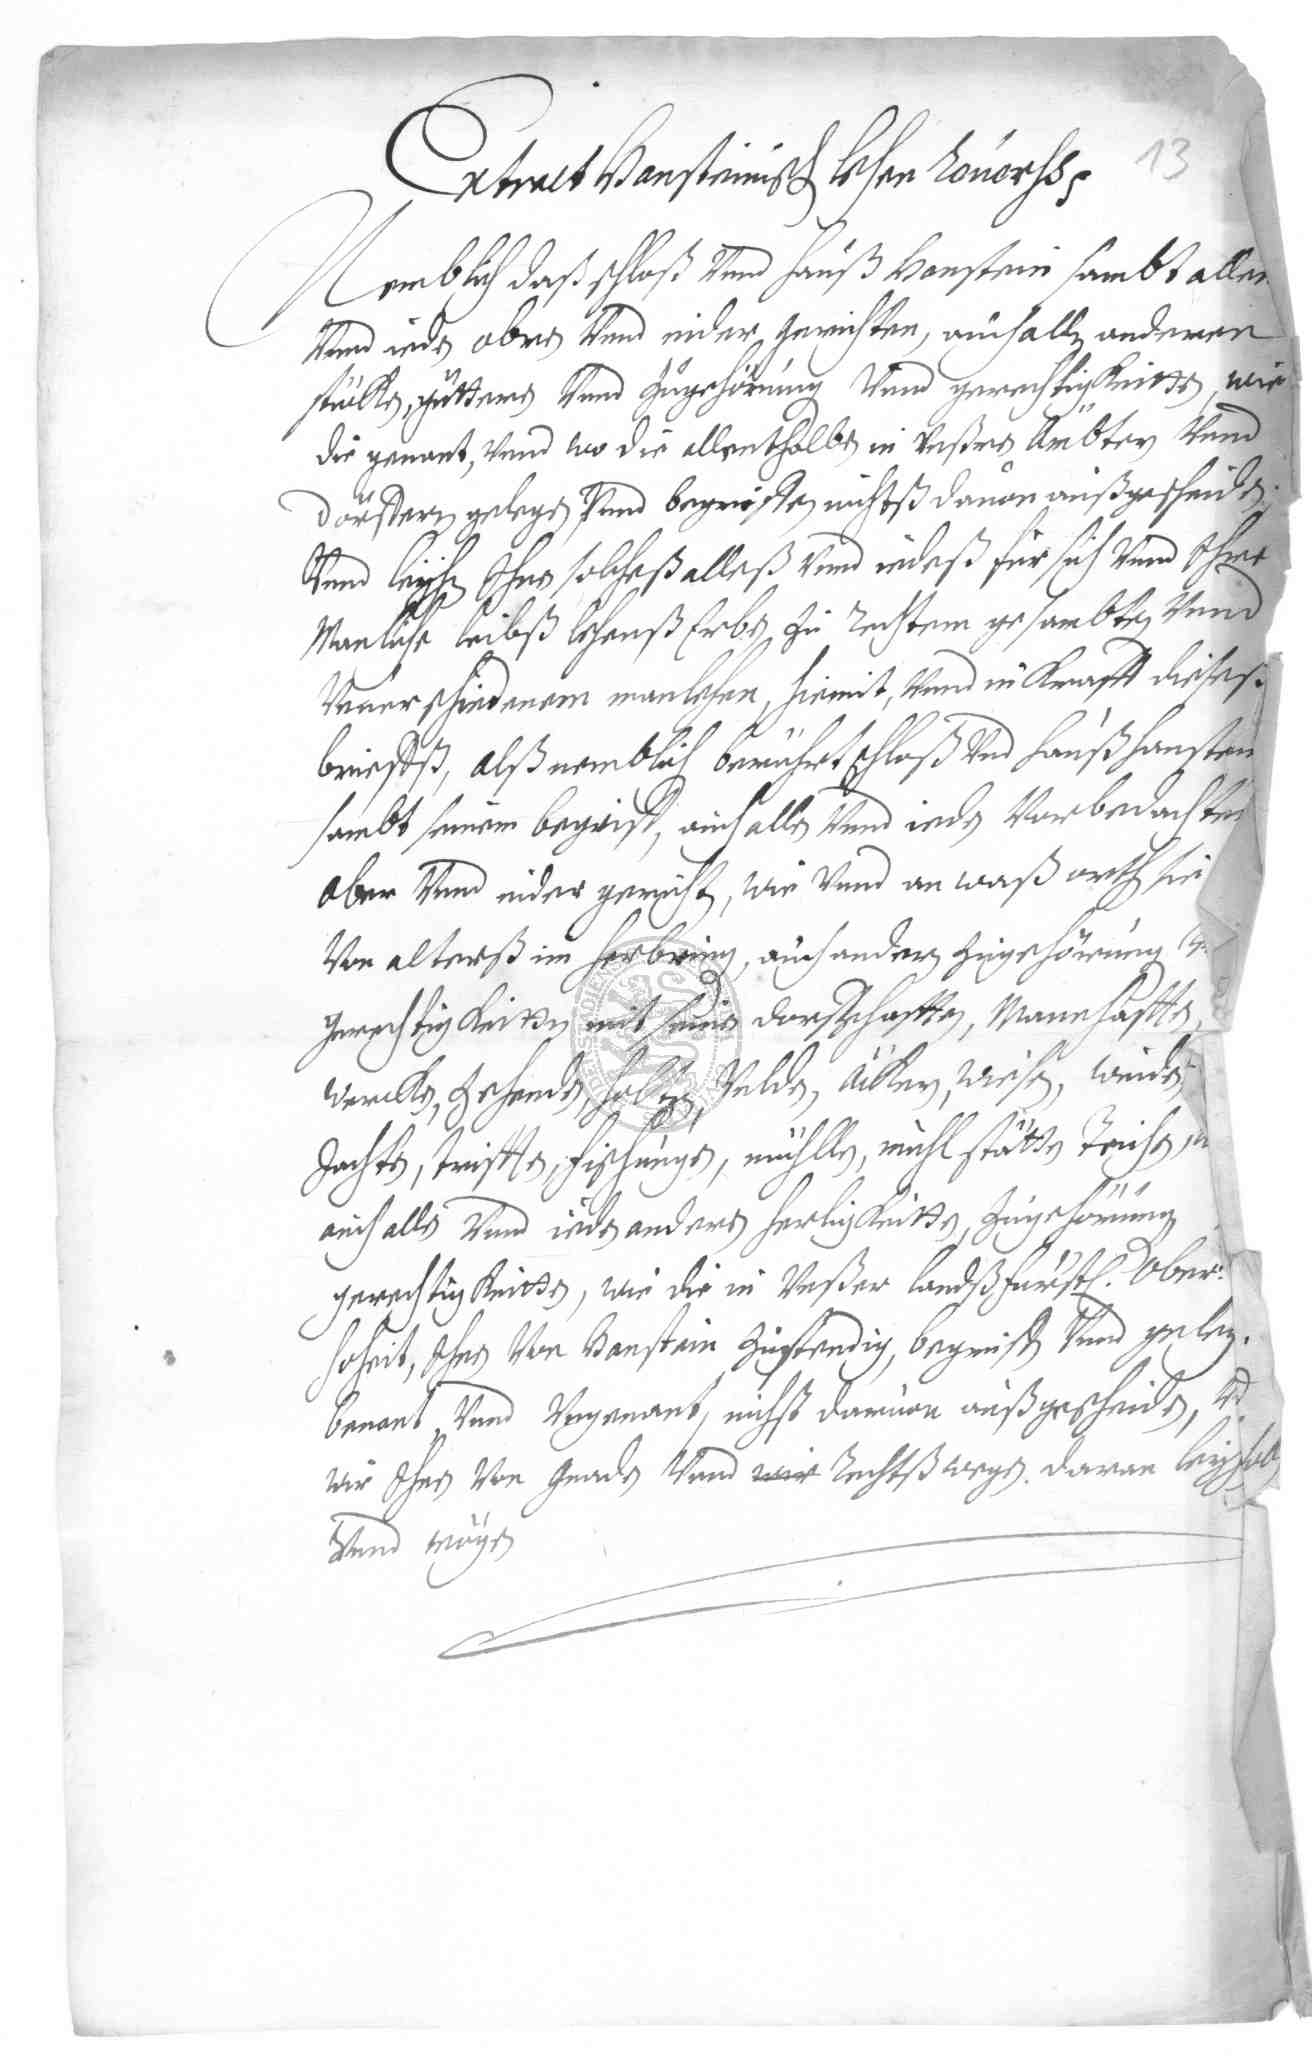 13
Extract Hansteinisch lehen
Nemblich daß schloß Vnnd hauß Hanstein sambt allen
Vnnd iede obern Vnnd nider gerichten, auch allen anderen
stücken, güttern Vnnd Zugehörung Vnnd gerechtigkeitten, wie
die genant, Vnnd wo die allenthalben in Vnßern Ämbtern Vnnd
dörffern gelegen Vnnd begriffen nichtß dauon außgescheiden.
Vnnd leyhen Ihnen solcheß alleß Vnnd iedeß für sich Vnnd Ihre
Manliche leibß lehenß Erben zu rechtem gesambten Vnnd
Vnuerschiedenem manlehen, hiemit, Vnnd in Krafft dießeß
brieffß, alß nemblich berührt schloß Vnd hauß hanstein
sambt seinem begriff, auch alle Vnnd iede Vorbedachten
ober Vnnd nider gericht, wie Vnnd an waß orth sie
Von alterß im herbring, auch andern Zugehörung
gerechtigkeitten mit seinen dorffschafften, Mannschafften,
Zehende, holtzen, Velde, Äcker, wiesen, weide,
Jachten, trifften, fischungen, mühlen, mühlstätten Teichen
auch alle Vnnd iede andere herligkeitten, Zugehörung
gerechtigkeitten, wie die in Vnßer landßfürstl. Ober
hoheit, Ihnen Von Hanstein Zustendig, begriffen Vnnd geleg.
benant Vnnd Vngenant, nichß daruon außgescheiden,
wir Ihnen Von Gnaden Vnnd wir rechtßwegen daran leyhen
Vnnd mögen